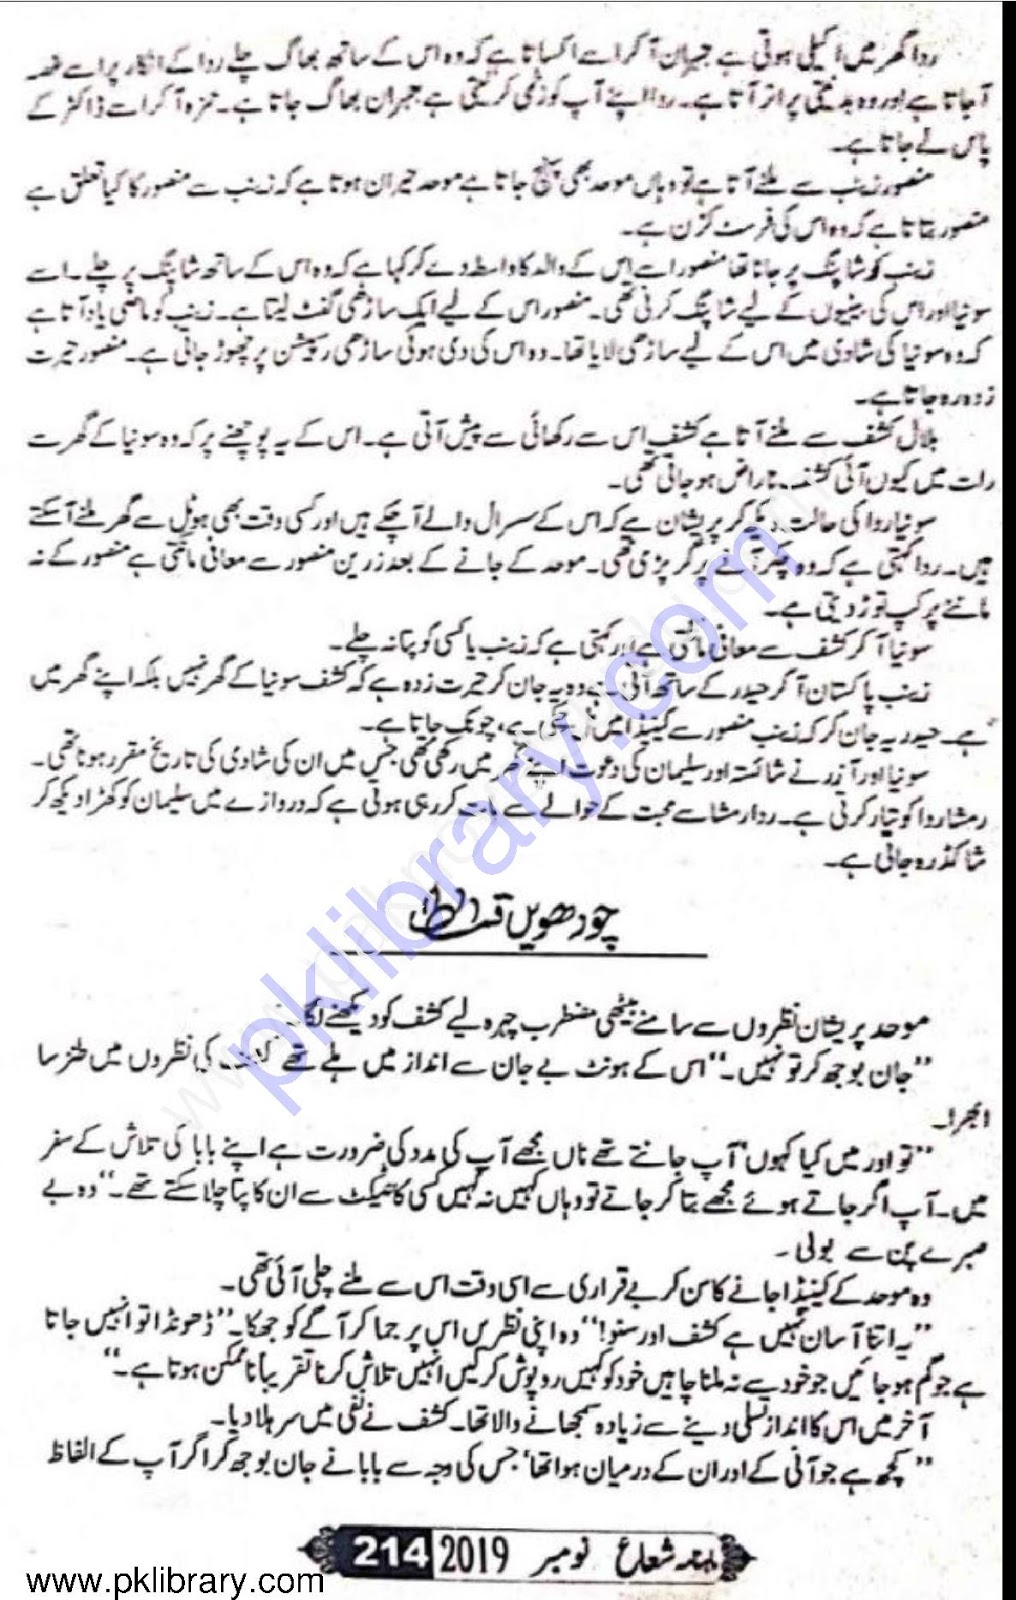 ردا گھر میں اکیلی ہوتی ہے جبران آ کر اسے اکساتا ہے کہ وہ اس کے ساتھ بھاگ چلے ردا کے انکار پر اسے غصہ
آ جاتا ہے اور وہ بدتمیزی پر اتر آتا ہے۔ ردا اپنے آپ کو زخمی کر لیتی ہے جبران بھاگ جاتا ہے۔ حمزہ آ کر اسے ڈاکٹر کے
پاس لے جاتا ہے۔
منصور زینب سے ملنے آتا ہے تو وہاں موحد بھی پہنچ جاتا ہے موحد حیران ہوتا ہے کہ زینب سے منصور کا کیا تعلق ہے
منصور بتاتا ہے کہ وہ اس کی فرسٹ کزن ہے۔
زینب کو شاپنگ پر جانا تھا منصور اسے اس کے والد کا واسطہ دے کر کہا ہے کہ وہ اس کے ساتھ شاپنگ پر چلے۔ اسے
سونیا اور اس کی بیٹیوں کے لیے شاپنگ کرنی تھی۔ منصور اس کے لیے ایک ساڑھی گفٹ لیتا ہے۔ زینب کو ماضی یاد آتا ہے
کہ وہ سونیا کی شادی میں اس کے لیے ساڑھی لایا تھا۔ وہ اس کی دی ہوئی ساڑھی رسیپشن پر چھوڑ جاتی ہے۔ منصور حیرت
زدہ رہ جاتا ہے۔
بلال کشف سے ملنے آتا ہے کشف اس سے رکھائی سے پیش آتی ہے۔ اس کے یہ پوچھنے پر کہ وہ سونیا کے گھر سے
رات میں کیوں آئی کشف ناراض ہو جاتی تھی۔
سونیا ردا کی حالت دیکھ کر پریشان ہے کہ اس کے سسرال والے آ چکے ہیں اور کسی وقت بھی ہوٹل سے گھر ملنے آ سکتے
ہیں۔ ردا کہتی ہے کہ وہ چکر آنے پر گر پڑی تھی۔ موحد کے جانے کے بعد زرین منصور سے معافی مانگتی ہے منصور کے نہ
ماننے پر کپ توڑ دیتی ہے۔
سونیا آ کر کشف سے معافی مانگتی ہے اور کہتی ہے کہ زینب یا کسی کو پتا نہ چلے۔
زینب پاکستان آ کر حیدر کے ساتھ آتی ہے وہ یہ جان کر حیرت زدہ ہے کہ کشف سونیا کے گھر نہیں بلکہ اپنے گھر میں
ہے۔ حیدر یہ جان کر کہ زینب منصور سے کینیڈا میں مل چکی ہے، چونک جاتا ہے۔
سونیا اور آزر نے شائستہ اور سلیمان کی دعوت اپنے گھر میں رکھی تھی جس میں ان کی شادی کی تاریخ مقرر ہونا تھی۔
رمشا ردا کو تیار کرتی ہے۔ ردا رمشا سے محبت کے حوالے سے بات کر رہی ہوتی ہے کہ دروازے میں سلیمان کو کھڑا دیکھ کر
شاکڈ رہ جاتی ہے۔
چودھویں قسط
موحد پریشان نظروں سے سامنے بیٹھی مضطرب چہرہ لیے کشف کو دیکھنے لگا۔
"جان بوجھ کر تو نہیں۔" اس کے ہونٹ بے جان سے انداز میں ہلے تھے کشف کی نظروں میں طنز سا
ابھرا۔
"تو اور میں کیا کہوں آپ جانتے تھے ناں مجھے آپ کی مدد کی ضرورت ہے اپنے بابا کی تلاش کے سفر
میں۔ آپ اگر جاتے ہوئے مجھے بتا کر جاتے تو وہاں کہیں نہ کہیں کسی کانٹیکٹ سے ان کا پتا چلا سکتے تھے۔" وہ بے
صبرے پن سے بولی۔
وہ موحد کے کینیڈا جانے کا سن کر بے قراری سے اسی وقت اس سے ملنے چلی آئی تھی۔
"یہ اتنا آسان نہیں ہے کشف اور سنو!" وہ اپنی نظریں اس پر جما کر آگے کو جھکا۔ "ڈھونڈا تو انہیں جاتا
ہے جو گم ہو جائیں جو خود سے نہ ملنا چاہیں خود کو کہیں روپوش کر لیں انہیں تلاش کرنا تقریباً ناممکن ہوتا ہے۔"
آخر میں اس کا انداز تسلی دینے سے زیادہ سمجھانے والا تھا۔ کشف نے نفی میں سر ہلا دیا۔
"کچھ ہے جو آنی کے اور ان کے درمیان ہوا تھا، جس کی وجہ سے بابا نے جان بوجھ کر اگر آپ کے الفاظ
ماہنامہ شعاع نومبر 2019 214
www.pklibrary.com
pklibrary.com